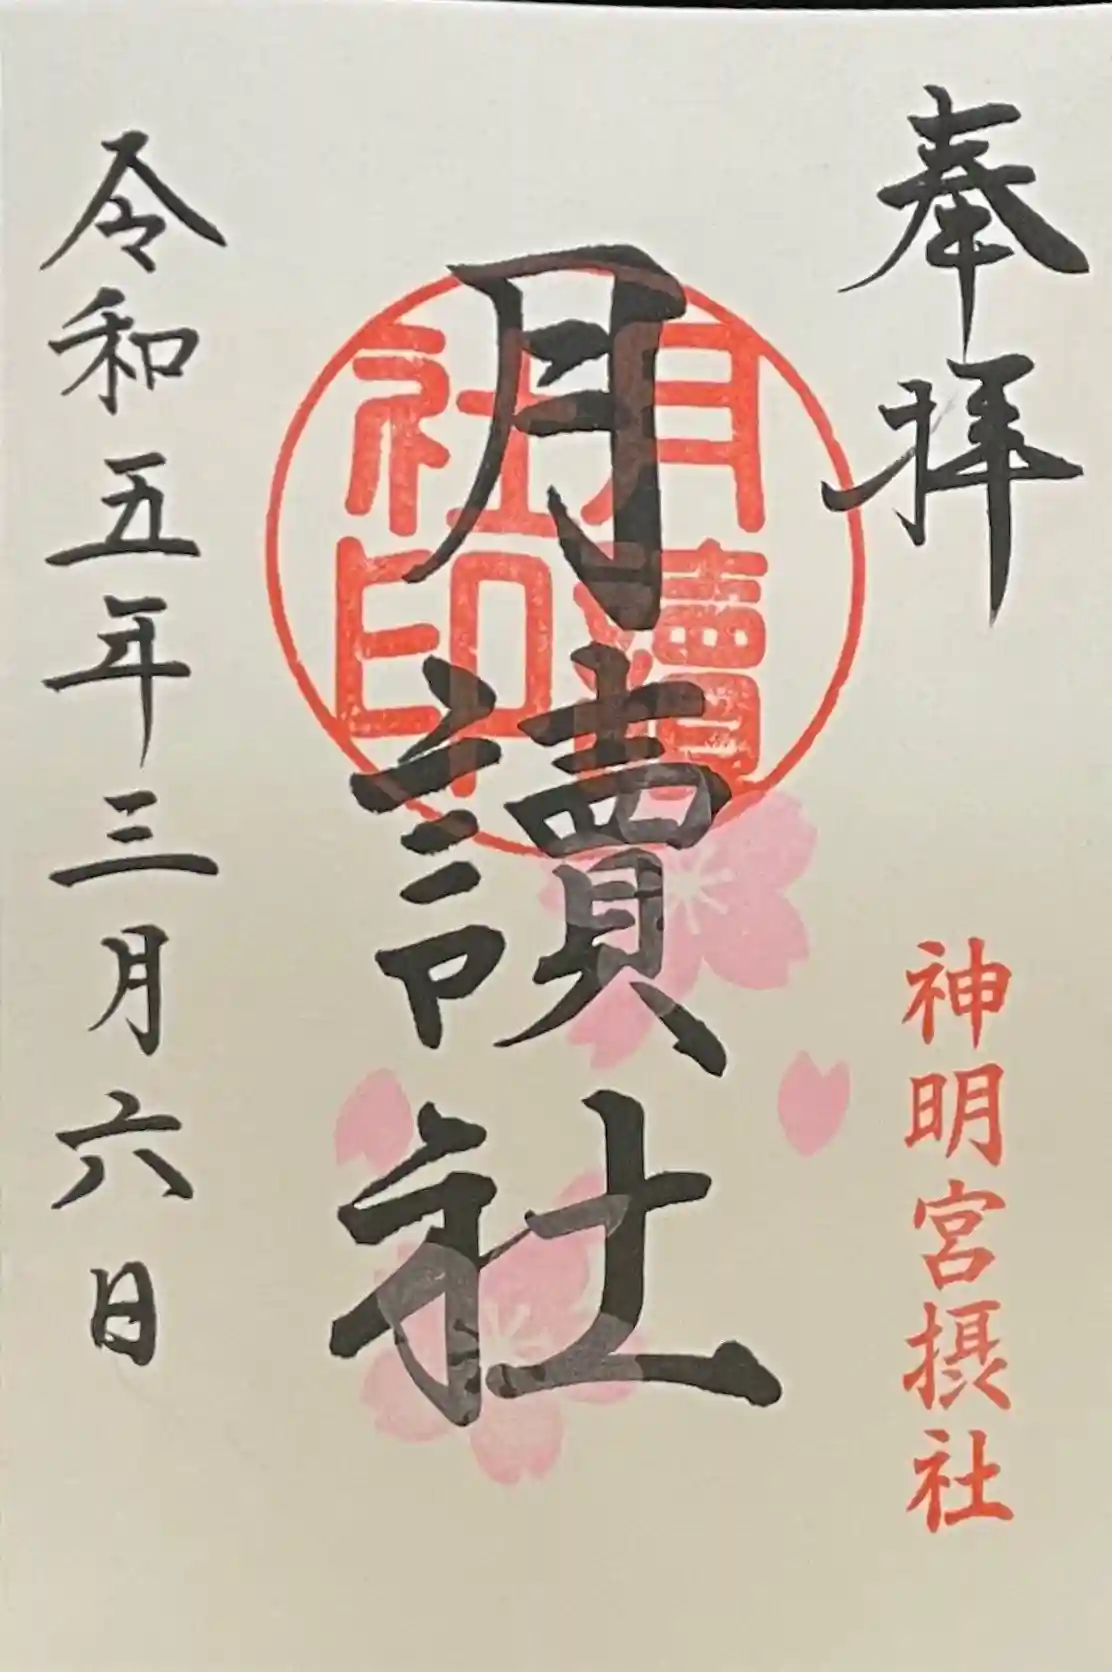 奉拝
神明宮摂社
月讀社
月讀
社印
令和五年三月六日